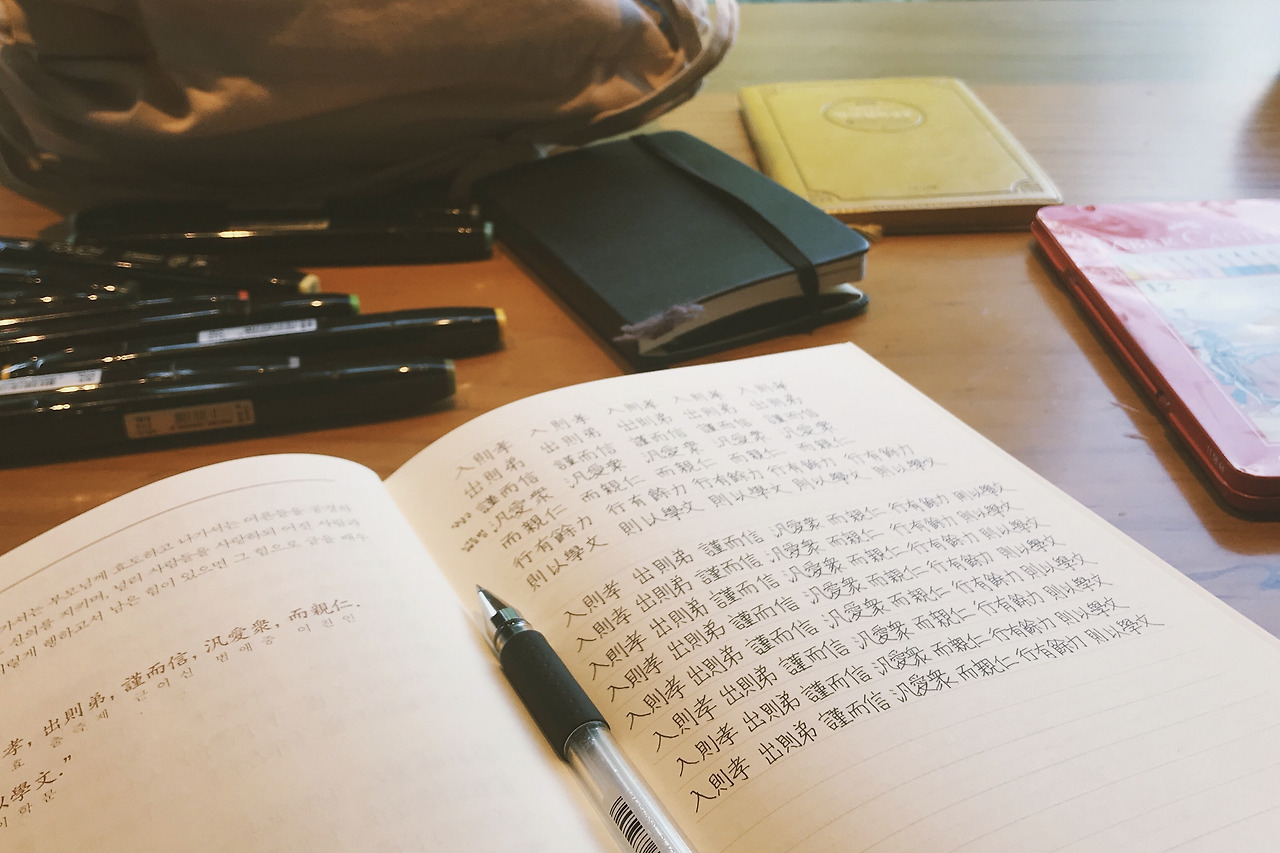 가서는 부모님께 효도하고 나가서는 어른들을 공경하
신의를 지키며, 널리 사람들을 사랑하되 어진 사람과
이렇게 행하고서 남은 힘이 있으면 그 힘으로 글을 배우
孝, 出則弟, 謹而信, 汎愛衆, 而親仁.
효 출즉제 근이신 범애중 이친인
以學文.”
이학문
入則孝 入則孝 入則孝 入則孝 入則孝
出則弟 出則弟 出則弟 出則弟 出則弟
謹而信 謹而信 謹而信 謹而信 謹而信
汎愛衆 汎愛衆 汎愛衆 汎愛衆 汎愛衆
而親仁 而親仁 而親仁 而親仁 而親仁
行有餘力 行有餘力 行有餘力 行有餘力 行有餘力
則以學文 則以學文 則以學文 則以學文 則以學文
入則孝 出則弟 謹而信 汎愛衆 而親仁 行有餘力 則以學文
入則孝 出則弟 謹而信 汎愛衆 而親仁 行有餘力 則以學文
入則孝 出則弟 謹而信 汎愛衆 而親仁 行有餘力 則以學文
入則孝 出則弟 謹而信 汎愛衆 而親仁 行有餘力 則以學文
入則孝 出則弟 謹而信 汎愛衆 而親仁 行有餘力 則以學文
入則孝 出則弟 謹而信 汎愛衆 而親仁 行有餘力 則以學文
入則孝 出則弟 謹而信 汎愛衆 而親仁 行有餘力 則以學文
入則孝 出則弟 謹而信 汎愛衆 而親仁 行有餘力 則以學文
12